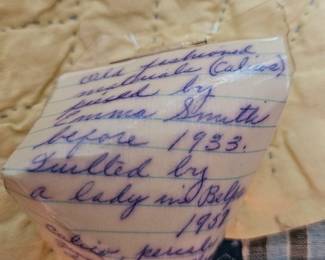 Old fashioned
materials (Calicos)
pieced by
Emma Smith
before 1933.
Quilted by
a lady in Belp
1951
calico, percal